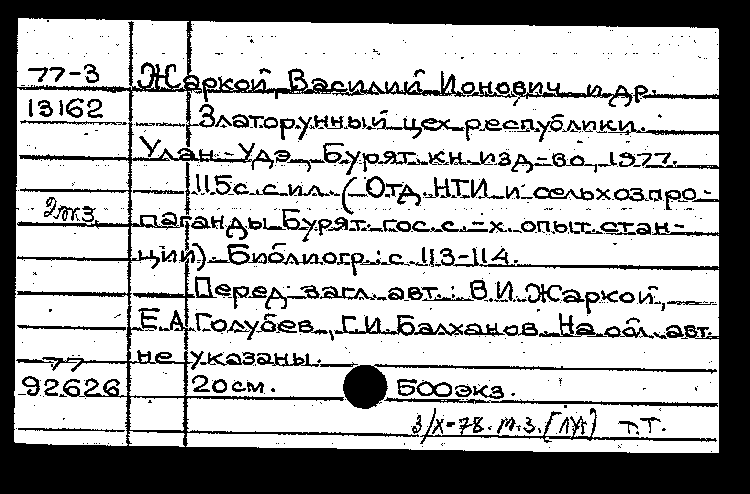 77-3 Жаркой, Василий Ионович и др.
13162 Златорунный цех республики.
Улан-Удэ, Бурят. кн. изд-во, 1977.
115с. с ил. (Отд. НТИ и сельхозпро-
2экз. паганды Бурят. гос. с.-х. опыт. стан-
ции). Библиогр.: с. 113-114.
Перед загл. авт.: В.И. Жаркой,
Е.А. Голубев, Г.И. Балханов. На обл. авт.
не указаны.
77
92626 20см. 500экз.
3/X-78. т.з. Т.Т.